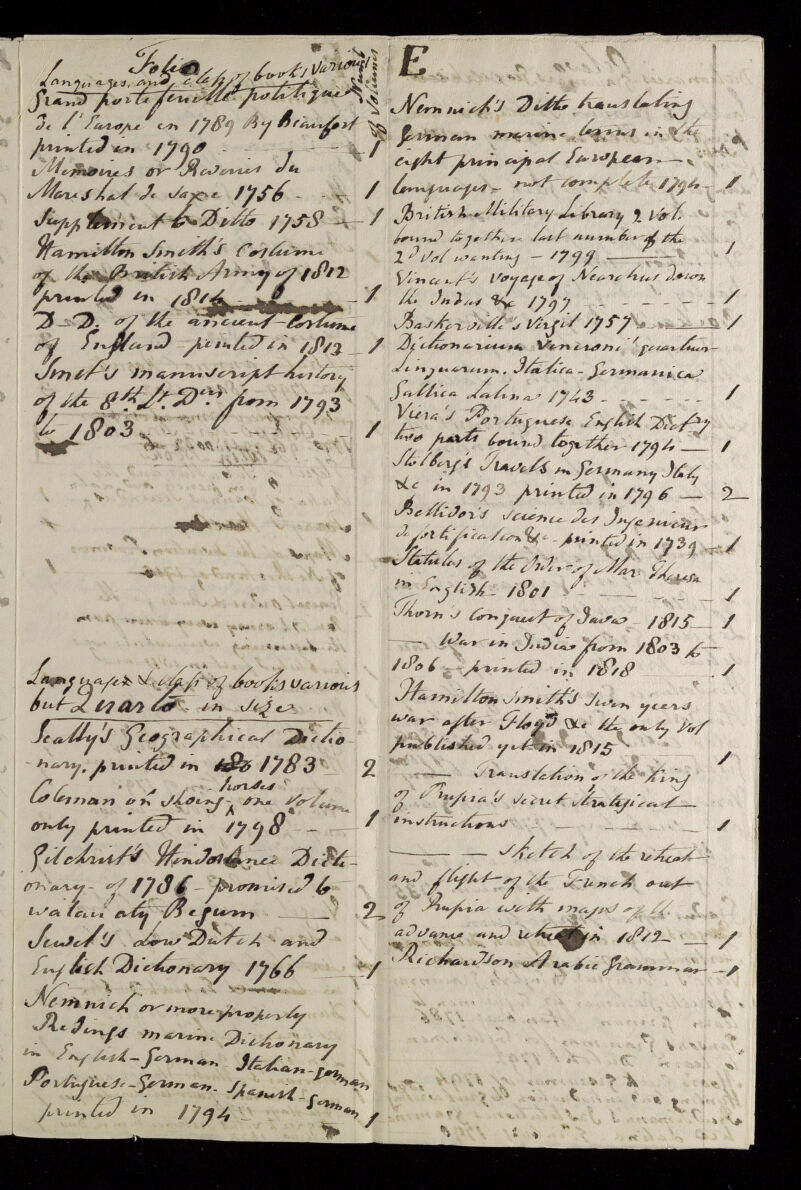 Folio
Languages and class of books various
Numb
of Volumes
Grand porte feuille politique
de l'Europe en 1789 By Beaufort
printed in 1790 - 1
Memoires or Reveries du
Mareshal de Saxe 1756 - - 1
Supplement to Ditto 1758 - 1
Hamilton Smith's Costume
of the British Army of 1812
printed in 1814 - 1
D D. of the ancient Costume
of England printed in 1813 - 1
Smet's manuscript history
of the 8th Lt. Dns from 1793
to 1803 - - 1
Languages & class of books various
but Quarto in size
Scally's Geographical Dictio-
-nary. printed in 1783 - 2
horses
Coleman on shoing ^ one volume
only printed in 1798 - - 1
Gilchrist's Hindostanee Dicti-
onary - of 1786 - promised to
aty Begum — 2
Sewel's Low Dutch and
English Dictionary 1766 - 1
Nemnich or more properly
Redings marine Dictionary
in English-German Italian-german
Portuguese-German. Spanish-German
printed in 1794 - 1
E
Nemnich's Ditto translating
German marine terms in the
eight principal European
languages - not complete 1794 - 1
British Military Library 2 Vol.
bound together last number of the
2d Vol wanting - 1799 — 1
Vincent's voyage of Nearchus down
the Indus &c 1797 - - - - 1
Baskerville's Virgil 1757 — 1
Dictionarium Veneroni quartuor
Linguarum. Italica-Germanica
Gallica Latina 1743 - - - - 1
Viera's Portuguese English Dictry
two parts bound together 1794 — 1
Stolberg's Travels in Germany Italy
&c in 1793 printed in 1796 — 2
Bellidor's Science des Ingenieur
de fortification &c - printed in 1739 - 1
Statutes of the Order of Mar. Theresa
in English - 1801 - - - 1
Thorn's Conquest of Java - 1815 - 1
— War in India from 1803 to
1806 - printed in 1818 - 1
Hamilton Smith's Seven years
war after Floyd &c the only Vol
published yet in 1815 1
— Translation of the King
of Prussia's secret strategical
instructions - - - 1
— sketch of the retreat
and flight of the French out
of Prussia with maps of the
advance and retreat in 1812 — 1
Richardson Arabic Grammar - 1